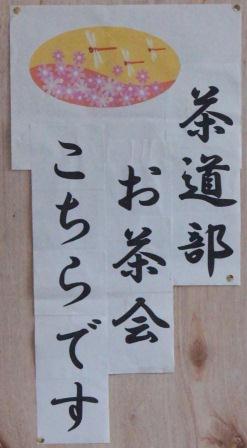 茶道部
お茶会
こちらです